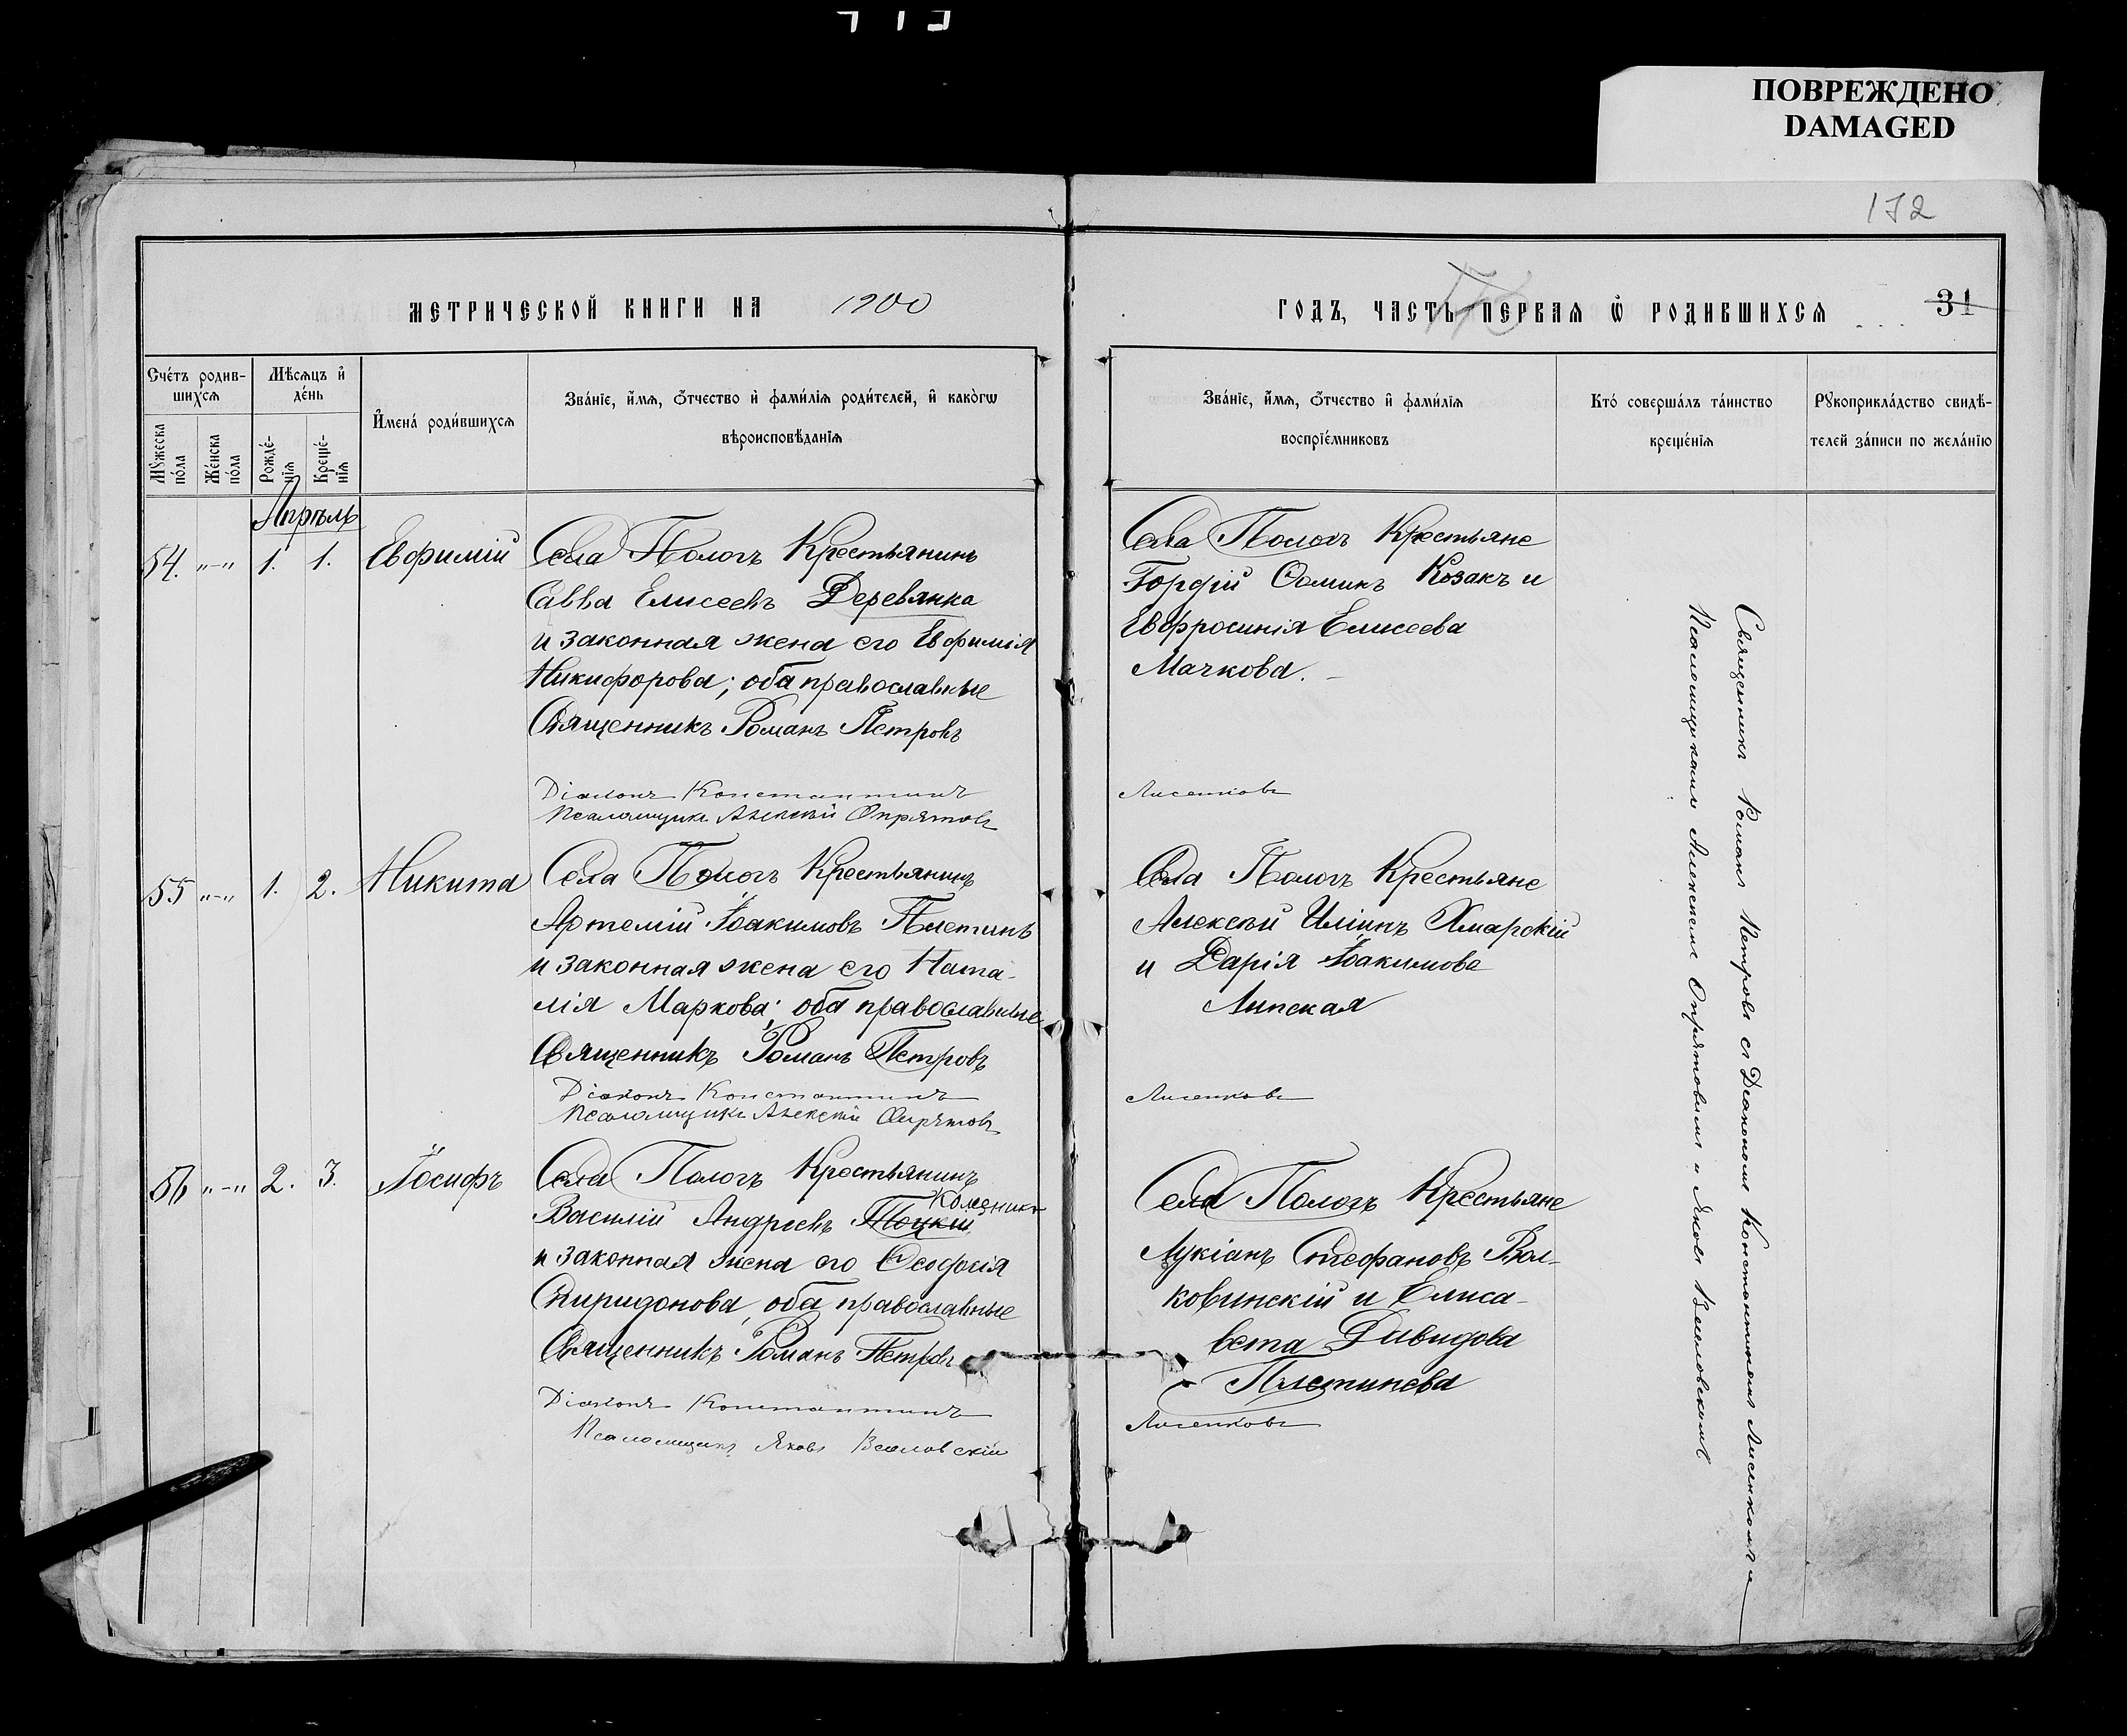 ПОВРЕЖДЕНО
DAMAGED
172
МЕТРИЧЕСКОЙ КНИГИ НА 1900
ГОДЪ, ЧАСТЬ ПЕРВАЯ Ѡ РОДИВШИХСЯ 31
Счетъ родив-
шихся
Мѣсяцъ и
день
Имена родившихся
Званіе, имя, отчество и фамилія родителей, и какогѡ
вѣроисповѣданія
Мужеска
пола
Женска
пола
Рожде-
нія
Креще-
нія
Званіе, имя, отчество и фамилія
воспріемниковъ
Кто совершалъ таинство
крещенія
Рукоприкладство свидѣ-
телей записи по желанію
Апрѣль
54. "-" 1. 1. Евфимій
Села Пологъ Крестьянинъ
Савва Елисеевъ Деревянко
и законная жена его Евфимія
Никифорова; оба православные
Священникъ Романъ Петровъ
Діаконъ Константинъ
Псаломщикъ Алексій Опрятовъ
Села Пологъ Крестьяне
Гордій Ѳоминъ Козакъ и
Евфросинія Елисеева
Мачкова.
Лисенковъ
55 "-" 1. 2. Никита
Села Пологъ Крестьянинъ
Артемій Іоакимовъ Плетинь
и законная жена его Ната-
лія Маркова; оба православные
Священникъ Романъ Петровъ
Діаконъ Константинъ
Псаломщикъ Алексій Опрятовъ
Села Пологъ Крестьяне
Алексѣй Иліинъ Хмарскій
и Дарія Іоакимова
Липская
Лисенковъ
56 "-" 2. 3. Іосифъ
Села Пологъ Крестьянинъ
Василій Андреевъ Поцкій Коленикъ
и законная жена его Ѳеодосія
Спиридонова, оба православные
Священникъ Романъ Петровъ
Діаконъ Константинъ
Псаломщикъ Яковъ Веселовскій
Села Пологъ Крестьяне
Лукіанъ Стефановъ Вол-
ковинскій и Елиса-
вета Давидова
Плетинева
Лисенковъ
Священникъ Романъ Петровъ съ Діакономъ Константиномъ Лисенковымъ и
Псаломщиками Алексѣемъ Опрятовымъ и Яковъ Веселовскимъ